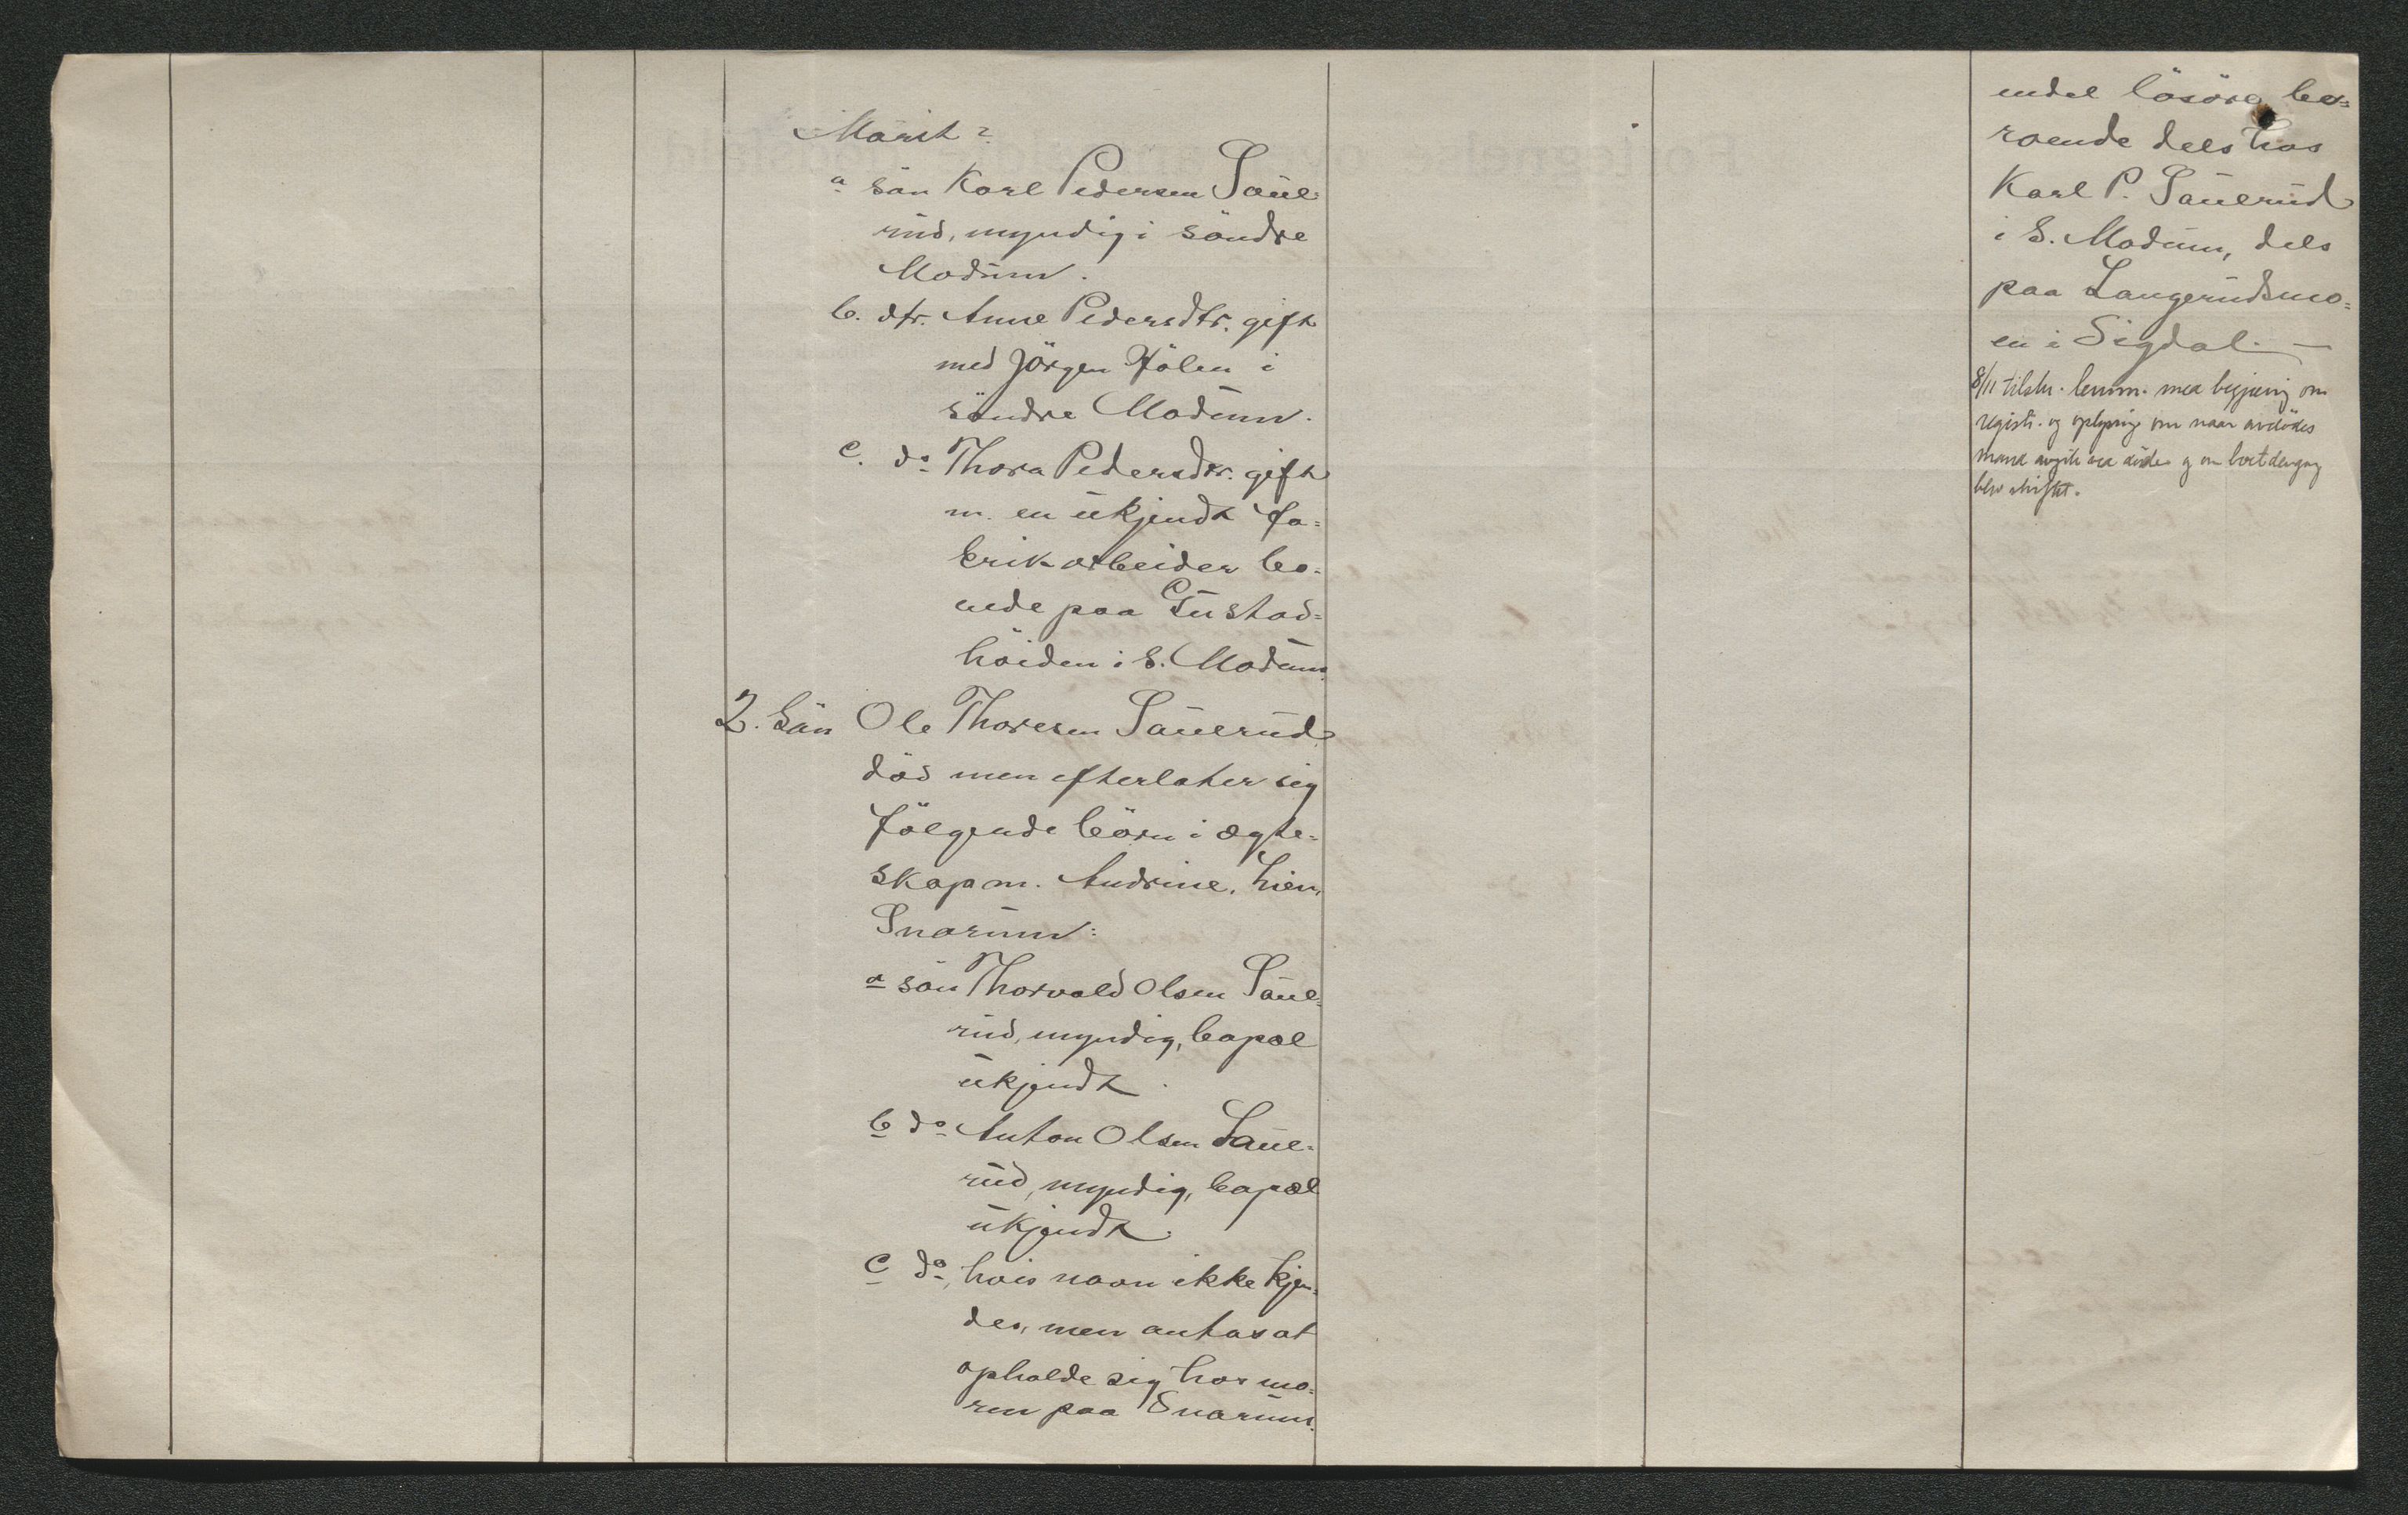 Marit?
a sön Karl Pedersen Saue=
rud, myndig i söndre
Modum.
b. dtr. Anne Pedersdtr. gift
med Jörgen Hölen i
söndre Modum.
c. do Thora Pedersdtr. gift
m. en ukjendt fa=
brikarbeider bo=
ende paa Gustad=
höiden i S. Modum.
2. Sön Ole Thoresen Sauerud
död men efterlater sig
fölgende börn i ægte=
skap m. Andrine, hjem
Snarum:
a sön Thorvald Olsen Saue=
rud, myndig, bopæl
ukjendt.
b do Anton Olsen Saue=
rud, myndig, bopæl
ukjendt.
c do, hvis navn ikke kjen=
des, men antas at
opholde sig hos mo=
ren paa Snarum.
endel lösöre be=
roende dels hos
Karl P. Sauerud
i S. Modum, dels
paa Langerudsmo=
en i Sigdal. —
8/11 tilskr. lensm. med begjæring om
registr. og oplysning om naar avdödes
mand avgik ved döden og om boet dengang
blev skiftet.